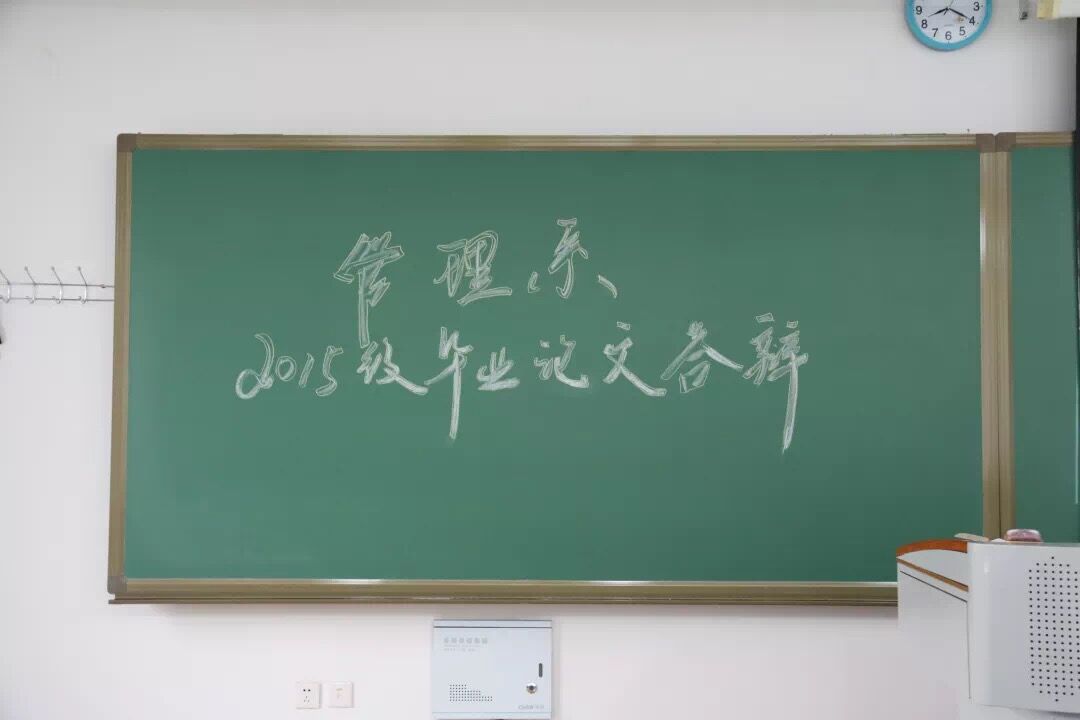 管理系
2015级毕业论文答辩
9 3
8 4
7 6 5